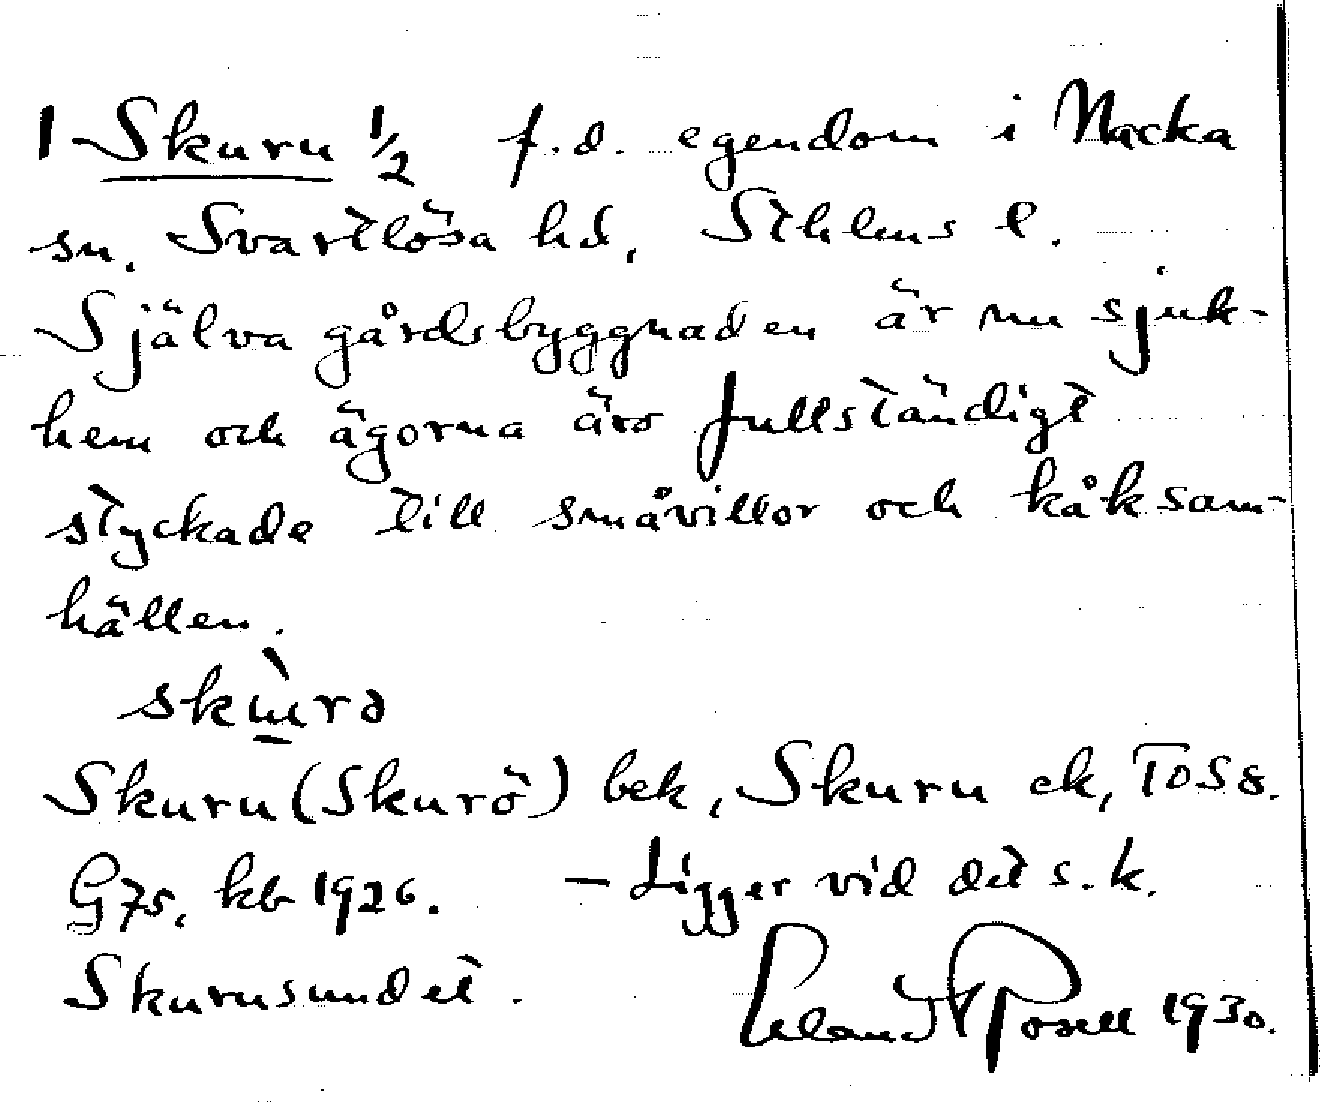 1 Skuru 1/2 f.d. egendom i Nacka
sn. Svartlösa hd, Sthlms l.
Själva gårdsbyggnaden är nu sjuk-
hem och ägorna äro fullständigt
styckade till småvillor och kåksam-
hällen.
Skuru (Skurö) bek, Skuru ek, TOS 8.
G 75, kb 1926. — Ligger vid det s.k.
Skurusundet.
Rosell 1930.